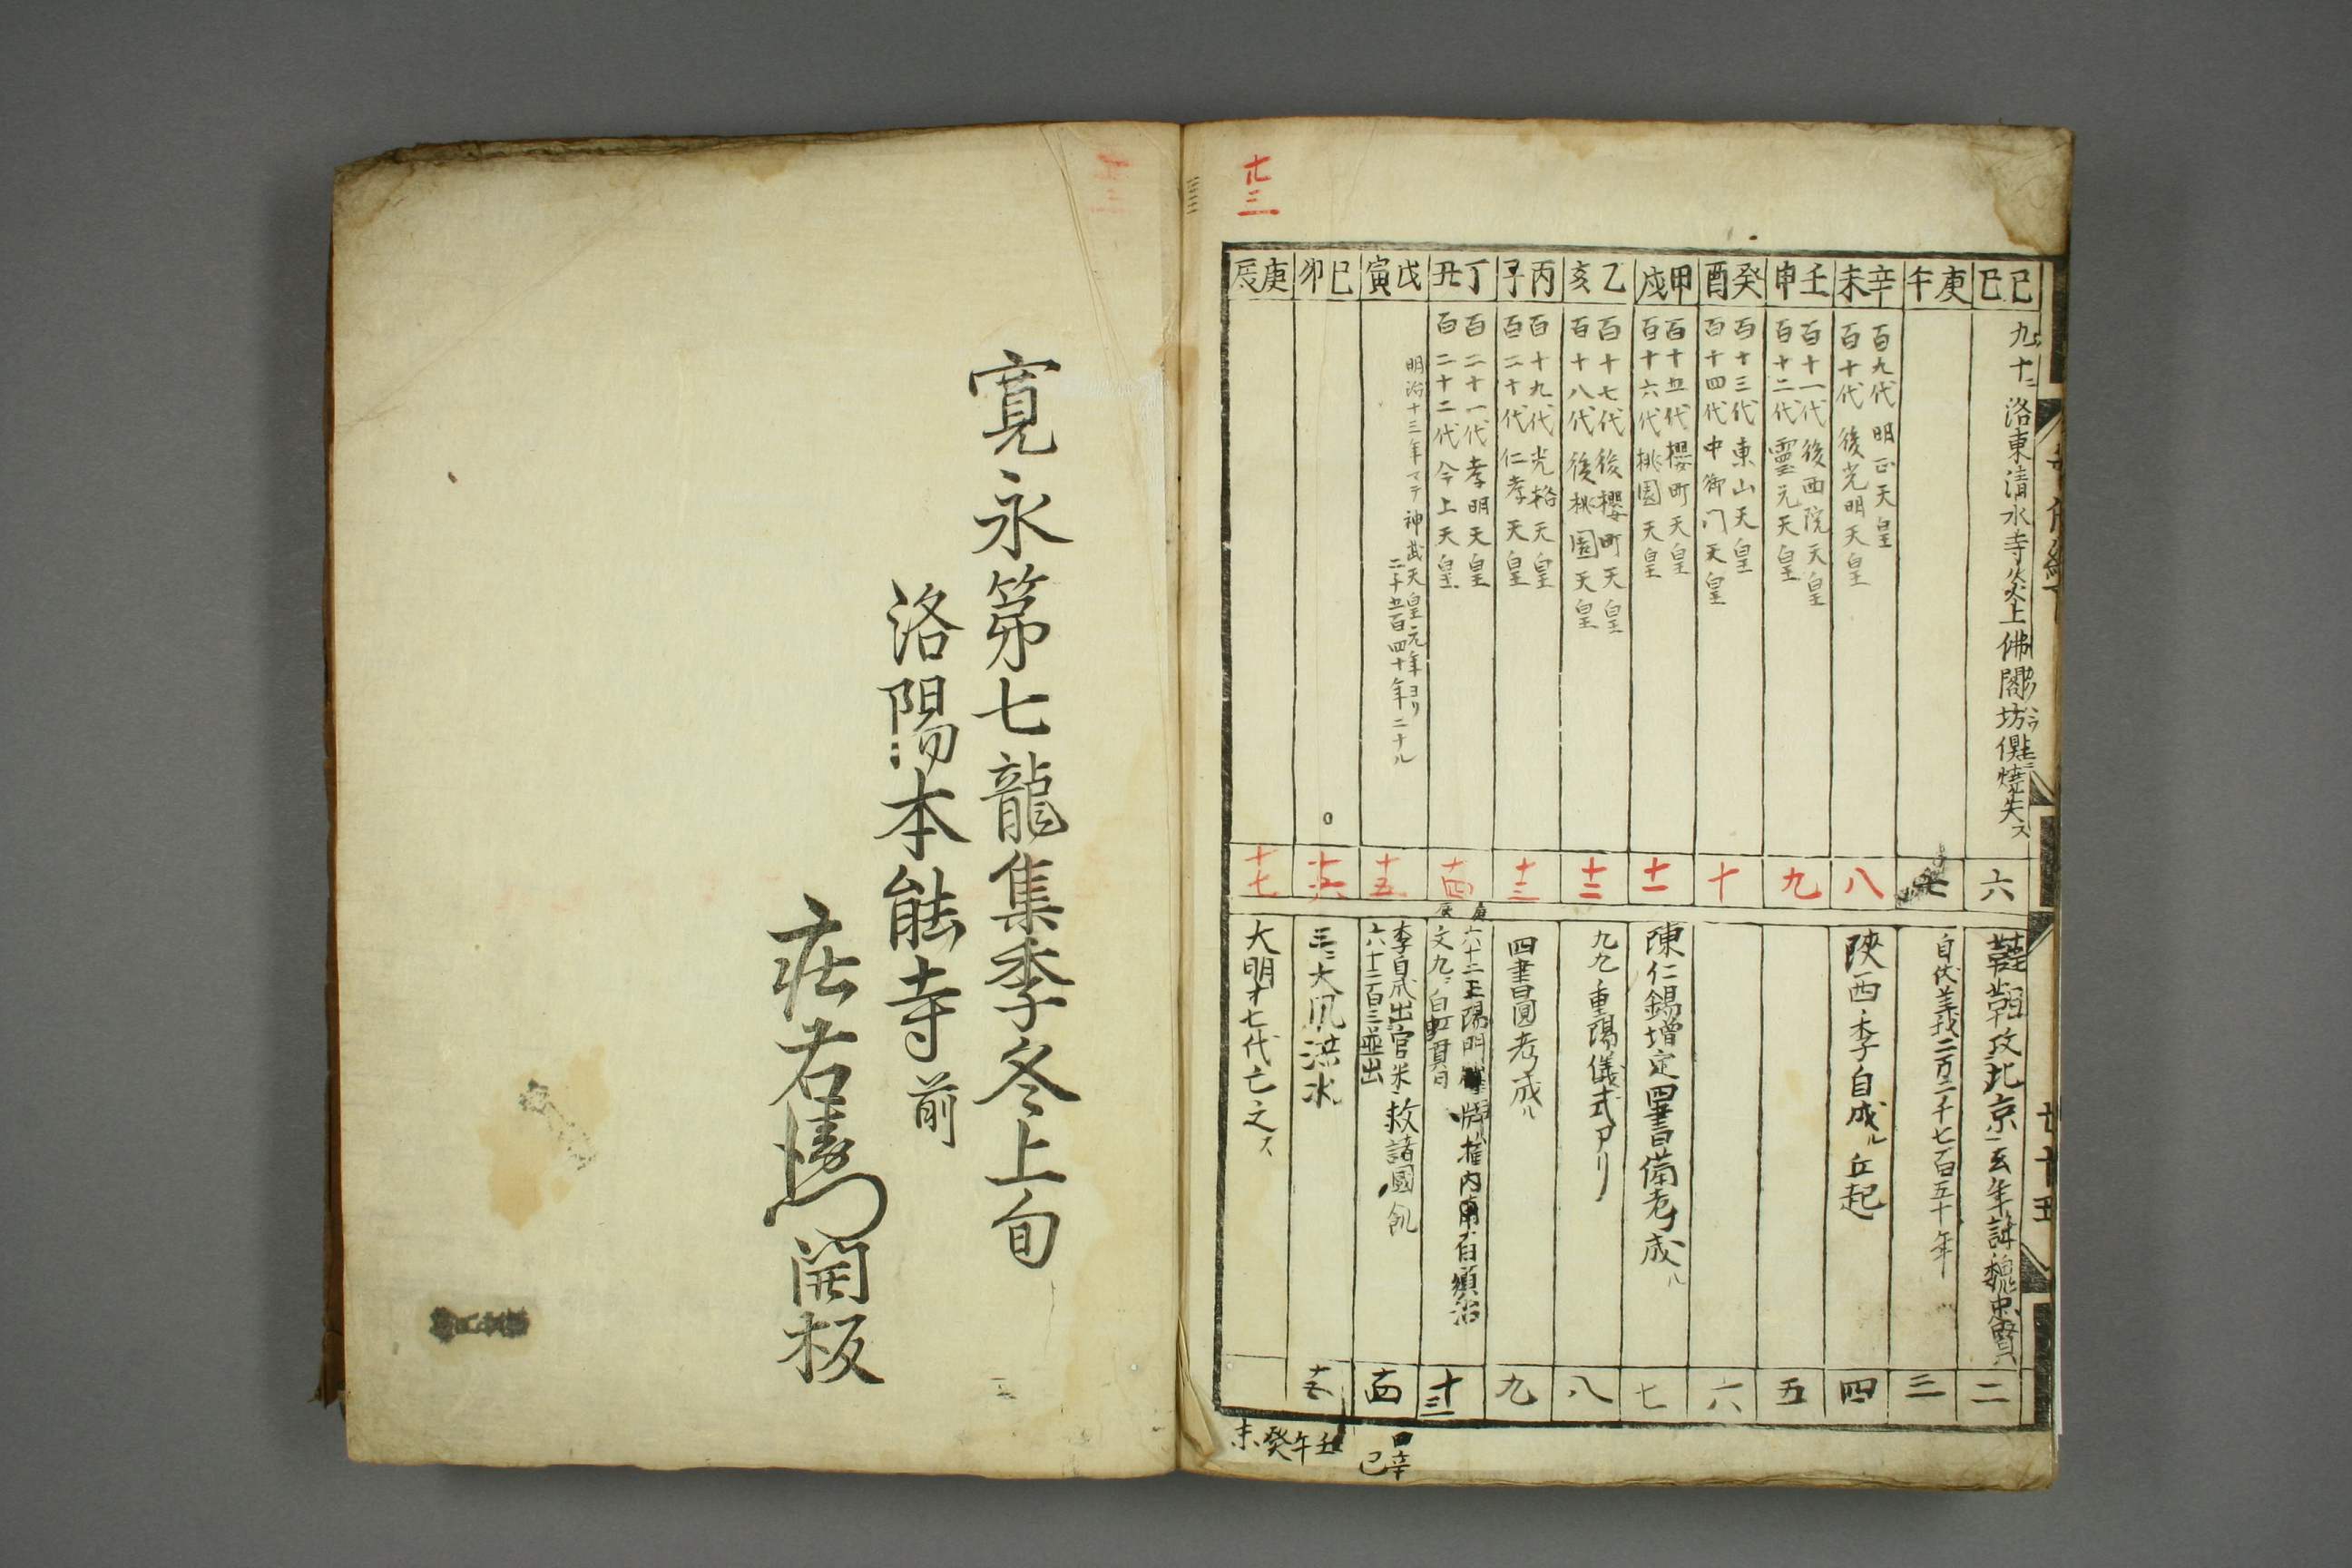 九十二 洛東清水寺炎上佛閣坊俱燒失ス
己巳
庚午
辛未
壬申
癸酉
甲戌
乙亥
丙子
丁丑
戊寅
己卯
庚辰
百九代 明正天皇
百十代 後光明天皇
百十一代 後西院天皇
百十二代 靈元天皇
百十三代 東山天皇
百十四代 中御门天皇
百十五代 櫻町天皇
百十六代 桃園天皇
百十七代 後櫻町天皇
百十八代 後桃園天皇
百十九代 光格天皇
百二十代 仁孝天皇
百二十一代 孝明天皇
百二十二代 今上天皇
明治十三年マテ神武天皇元年ヨリ
二千五百四十年ニナル
六
七
八
九
十
十一
十二
十三
十四
十五
十六
十七
韃靼攻北京 玄年誅魏忠賢
自伏羲 二万二千七百五十年
陝西李自成 丘起
陳仁錫增定四書備考成ル
九九重陽儀式アリ
四書圓考成ル
文九 白虹貫日
李自成出官米救諸國飢
大風洪水
大明十七代亡之ス
二
三
四
五
六
七
八
九
十三
十四
十五
辛巳
壬午
癸未
寛永第七龍集季冬上旬
洛陽本能寺前
開板